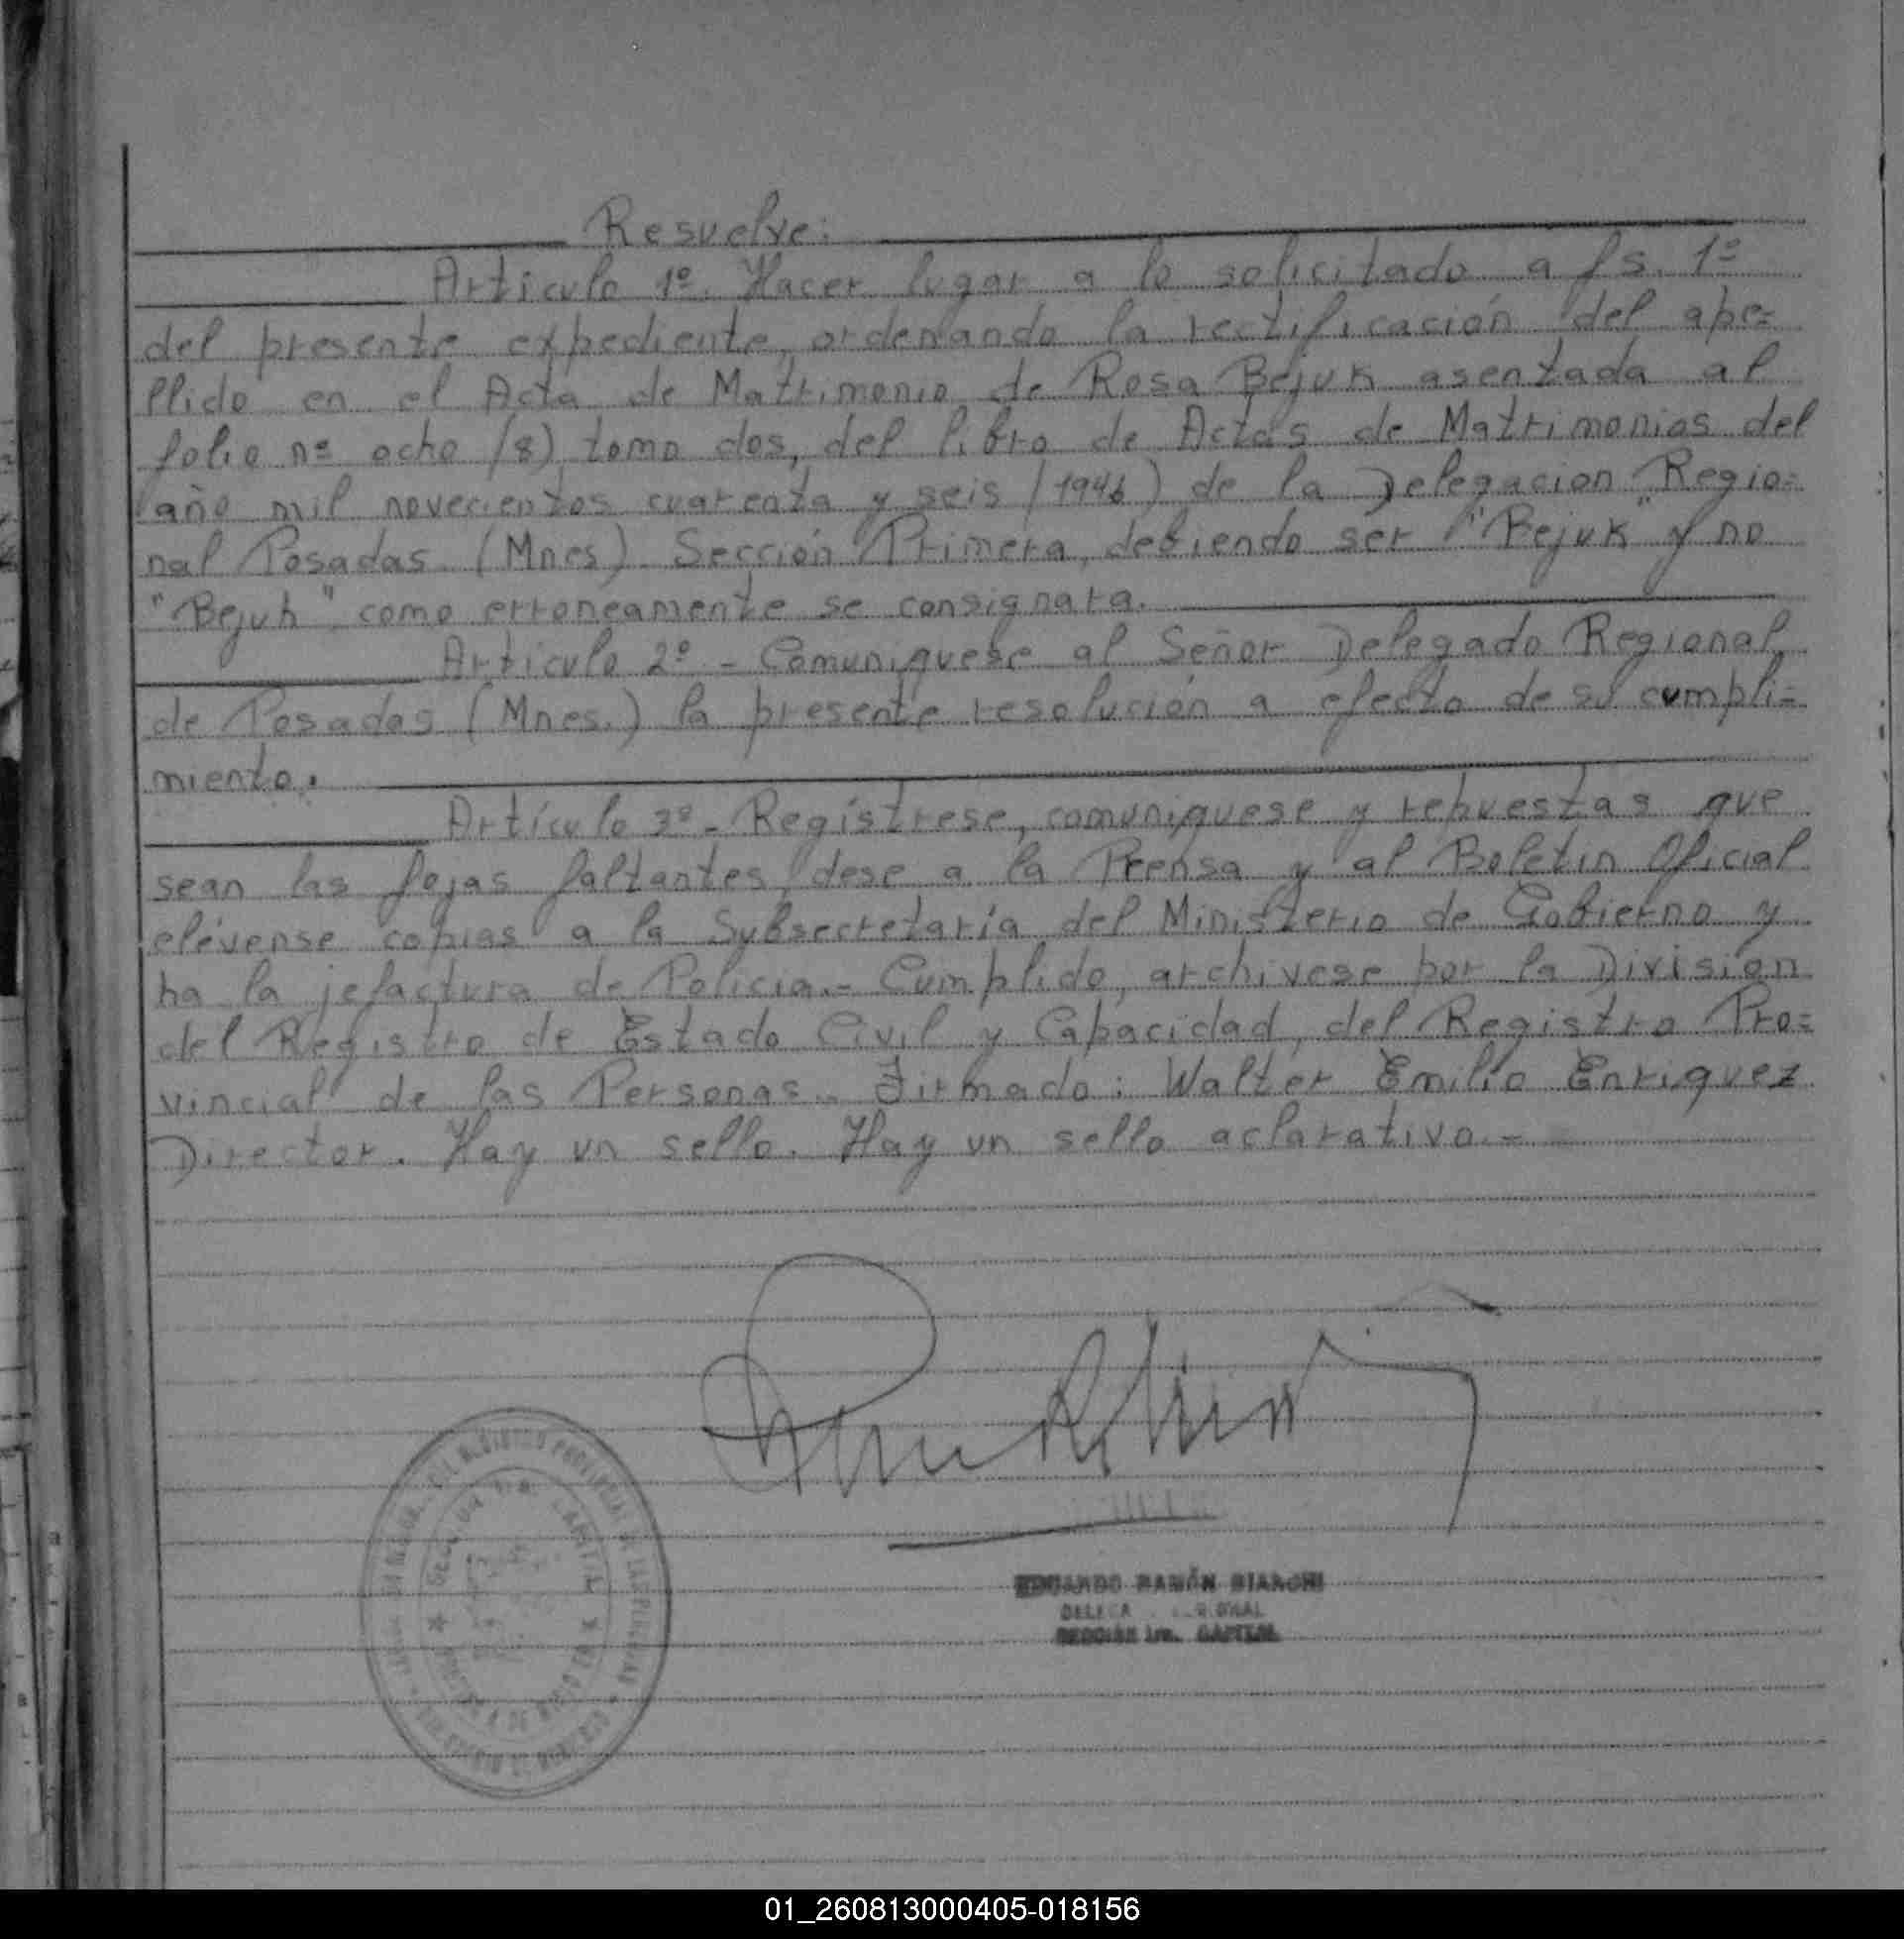 Resuelve:
Artículo 1º. Hacer lugar a lo solicitado a fs. 1º
del presente expediente, ordenando la rectificación del ape=
llido en el Acta de Matrimonio de Rosa Bejuk asentada al
folio nº ocho (8) tomo dos, del libro de Actas de Matrimonios del
año mil novecientos cuarenta y seis (1946) de la Delegacion Regio=
nal Posadas (Mnes) Sección Primera, debiendo ser "Bejuk" y no
"Bejuh" como erroneamente se consignara.
Artículo 2º - Comuniquese al Señor Delegado Regional
de Posadas (Mnes.) la presente resolución a efecto de su cumpli=
miento.
Artículo 3º - Regístrese, comuniquese y repuestas que
sean las fojas faltantes, dese a la Prensa y al Boletin Oficial
elévense copias a la Subsecretaría del Ministerio de Gobierno y
ha la jefactura de Policia.- Cumplido, archivese por la Division
del Registro de Estado Civil y Capacidad, del Registro Pro=
vincial de las Personas.- Firmado: Walter Emilio Enriquez
Director. Hay un sello. Hay un sello aclarativo.-
EDUARDO RAMÓN BIANCHI
SECCIÓN 1ra. CAPITAL
01_260813000405-018156